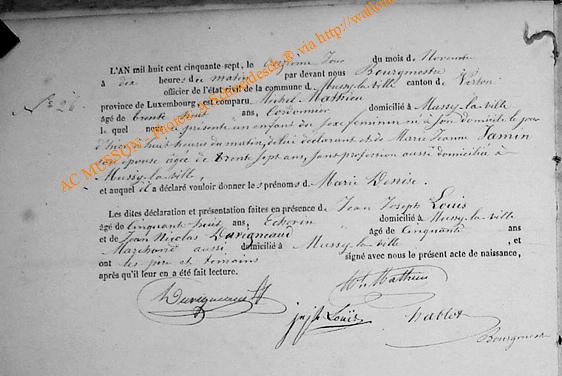 L'AN mil huit cent cinquante-sept, le onzième Jour du mois de Novembre
à dix heures du matin par devant nous Bourgmestre
officier de l'état civil de la commune de Mussy-la-ville canton de Virton
N° 26.
province de Luxembourg, est comparu Michel Mathieu
âgé de trente huit ans, Cordonnier domicilié à Mussy-la-ville
l quel nous a présenté un enfant du sexe féminin né à son domicile le jour
d'hier à huit heures du matin, de lui déclarant et de Marie Jeanne Jamin
son épouse âgée de trente sept ans, sans profession aussi domiciliée à
Mussy-la-ville,
et auquel il a déclaré vouloir donner les prénoms de Marie Denise.
Les dites déclaration et présentation faites en présence de Jean Joseph Louis
âgé de Cinquante huit ans, Echevin domicilié à Mussy-la-ville
et de Jean Nicolas Duvigneaud âgé de Cinquante ans
Marchand aussi domicilié à Mussy-la-ville, et
ont les père et témoins signé avec nous le présent acte de naissance,
après qu'il leur en a été fait lecture.
Mh Mathieu
Duvigneaud
jsph Louis
Hablot
Bourgmestre
AC MUSSON - Photos: A. Schaudeisch ® via http://wallo